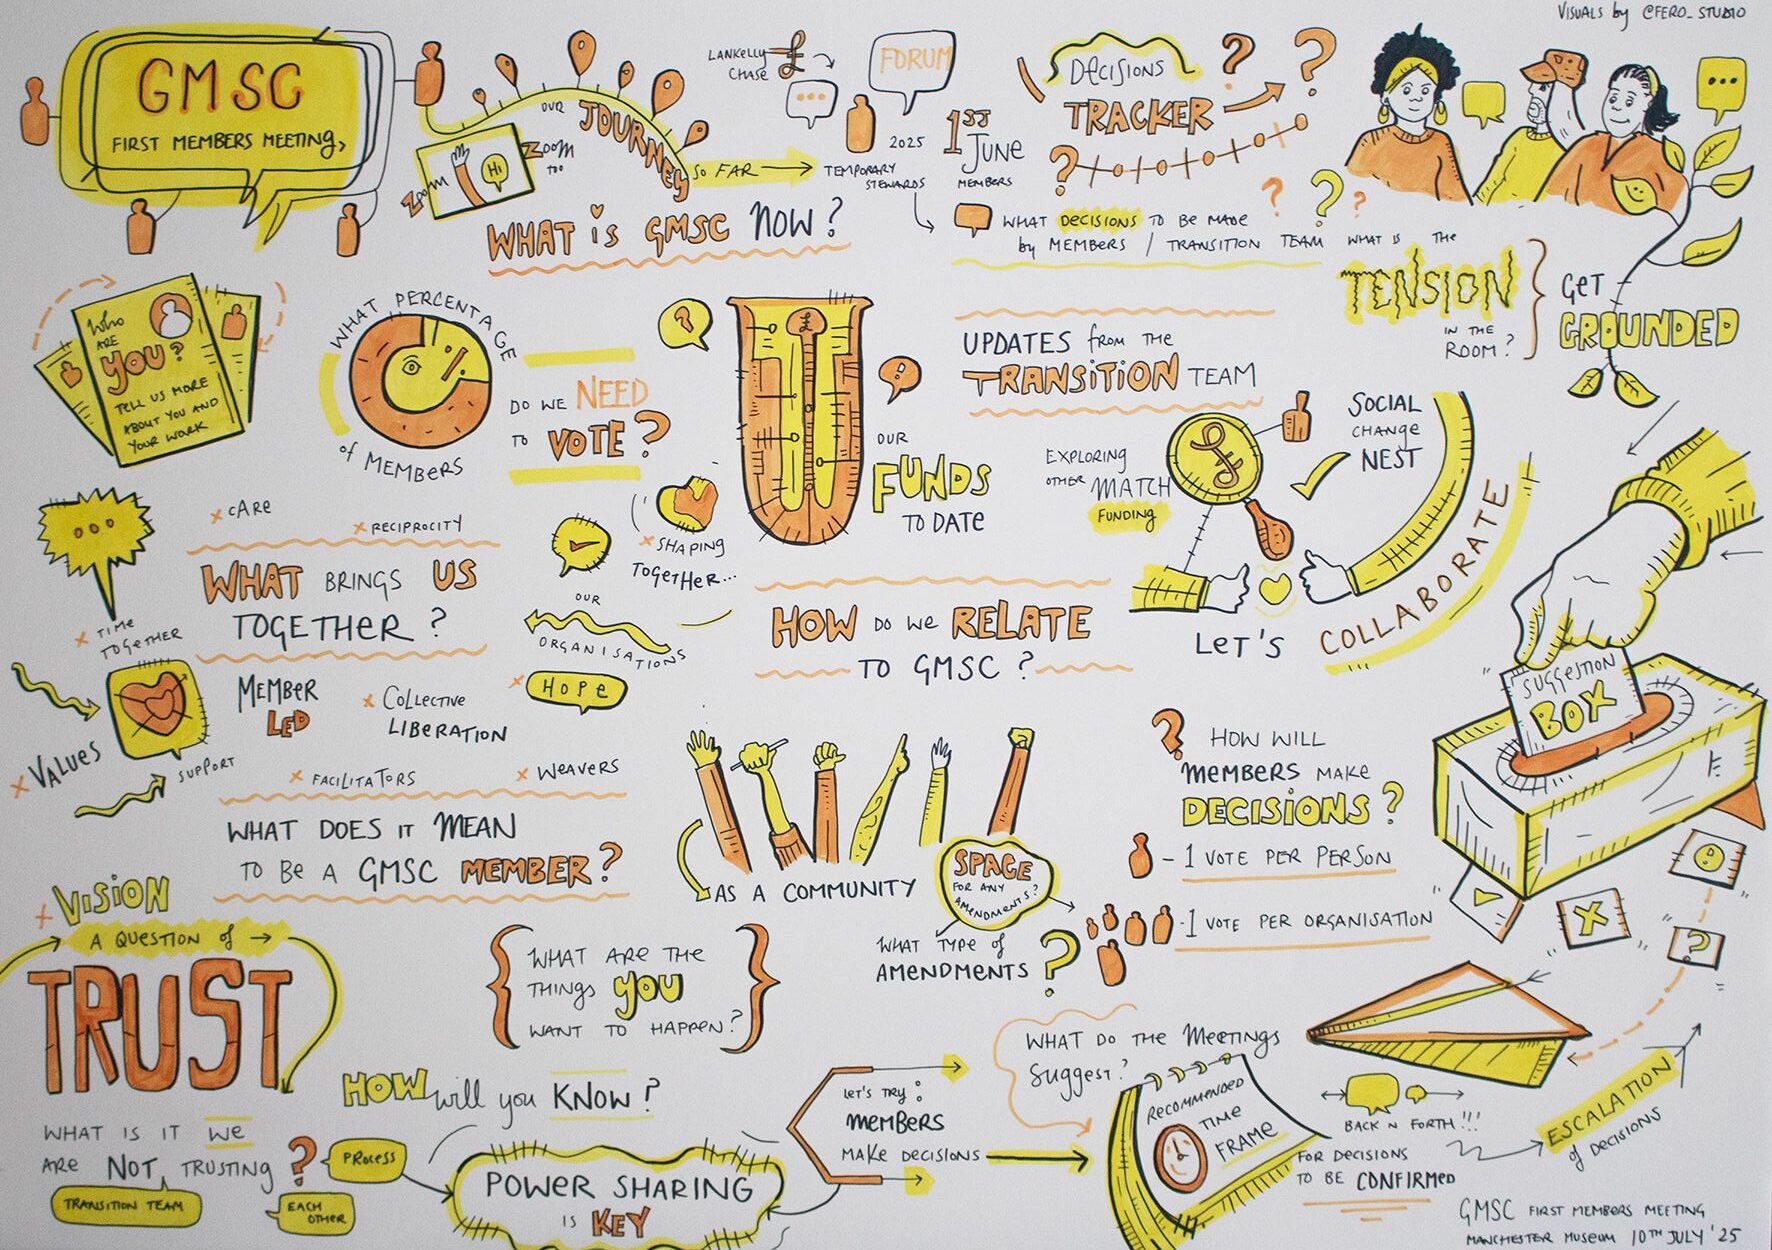 VISUALS by @FERO_STUDIO
GMSC
FIRST MEMBERS MEETING,
ZOOM
Hi
ZOOM
TOO
OUR
JOURNEY
SO FAR
LANKELLY
CHASE
£
FORUM
2025
TEMPORARY
STEWARDS
1ST
JUNE
MEMBERS
DECISIONS
TRACKER
WHAT DECISIONS TO BE MADE
by MEMBERS / TRANSITION TEAM
WHAT IS GMSC NOW?
WHAT IS THE
TENSION
IN THE
ROOM?
GET
GROUNDED
WHO
ARE
YOU?
TELL US MORE
ABOUT YOU AND
YOUR WORK
WHAT PERCENTAGE
of MEMBERS
%
DO WE NEED
TO VOTE?
£
OUR
FUNDS
TO DATE
UPDATES from THE
TRANSITION TEAM
EXPLORING
OTHER MATCH
FUNDING
£
SOCIAL
CHANGE
NEST
LET'S
COLLABORATE
x CARE
x RECIPROCITY
WHAT BRINGS US
TOGETHER?
x TIME
TOGETHER
x SHAPING
TOGETHER...
OUR
ORGANISATIONS
x HOPE
MEMBER
LED
x COLLECTIVE
LIBERATION
x VALUES
SUPPORT
HOW DO WE RELATE
TO GMSC?
SUGGESTION
BOX
x FACILITATORS
x WEAVERS
WHAT DOES IT MEAN
TO BE A GMSC MEMBER?
x VISION
AS A COMMUNITY
SPACE
FOR ANY
AMENDMENTS?
WHAT TYPE of
AMENDMENTS?
? HOW WILL
MEMBERS MAKE
DECISIONS?
- 1 VOTE PER PERSON
- 1 VOTE PER ORGANISATION
A QUESTION of →
TRUST
WHAT IS IT WE
ARE NOT TRUSTING?
TRANSITION TEAM
PROCESS
EACH
OTHER
WHAT ARE THE
THINGS YOU
WANT TO HAPPEN?
HOW will you KNOW?
POWER SHARING
IS KEY
LET'S TRY:
MEMBERS
MAKE DECISIONS
WHAT DO THE MEETINGS
SUGGEST?
RECOMMENDED
TIME
FRAME
BACK N FORTH!!!
FOR DECISIONS
TO BE CONFIRMED
ESCALATION
of DECISIONS
GMSC FIRST MEMBERS MEETING
MANCHESTER MUSEUM 10TH JULY '25